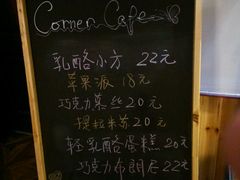 Corner Cafe
乳酪小方 22元
苹果派 18元
巧克力慕丝 20元
提拉米苏 20元
轻乳酪蛋糕 20元
巧克力布朗尼 22元